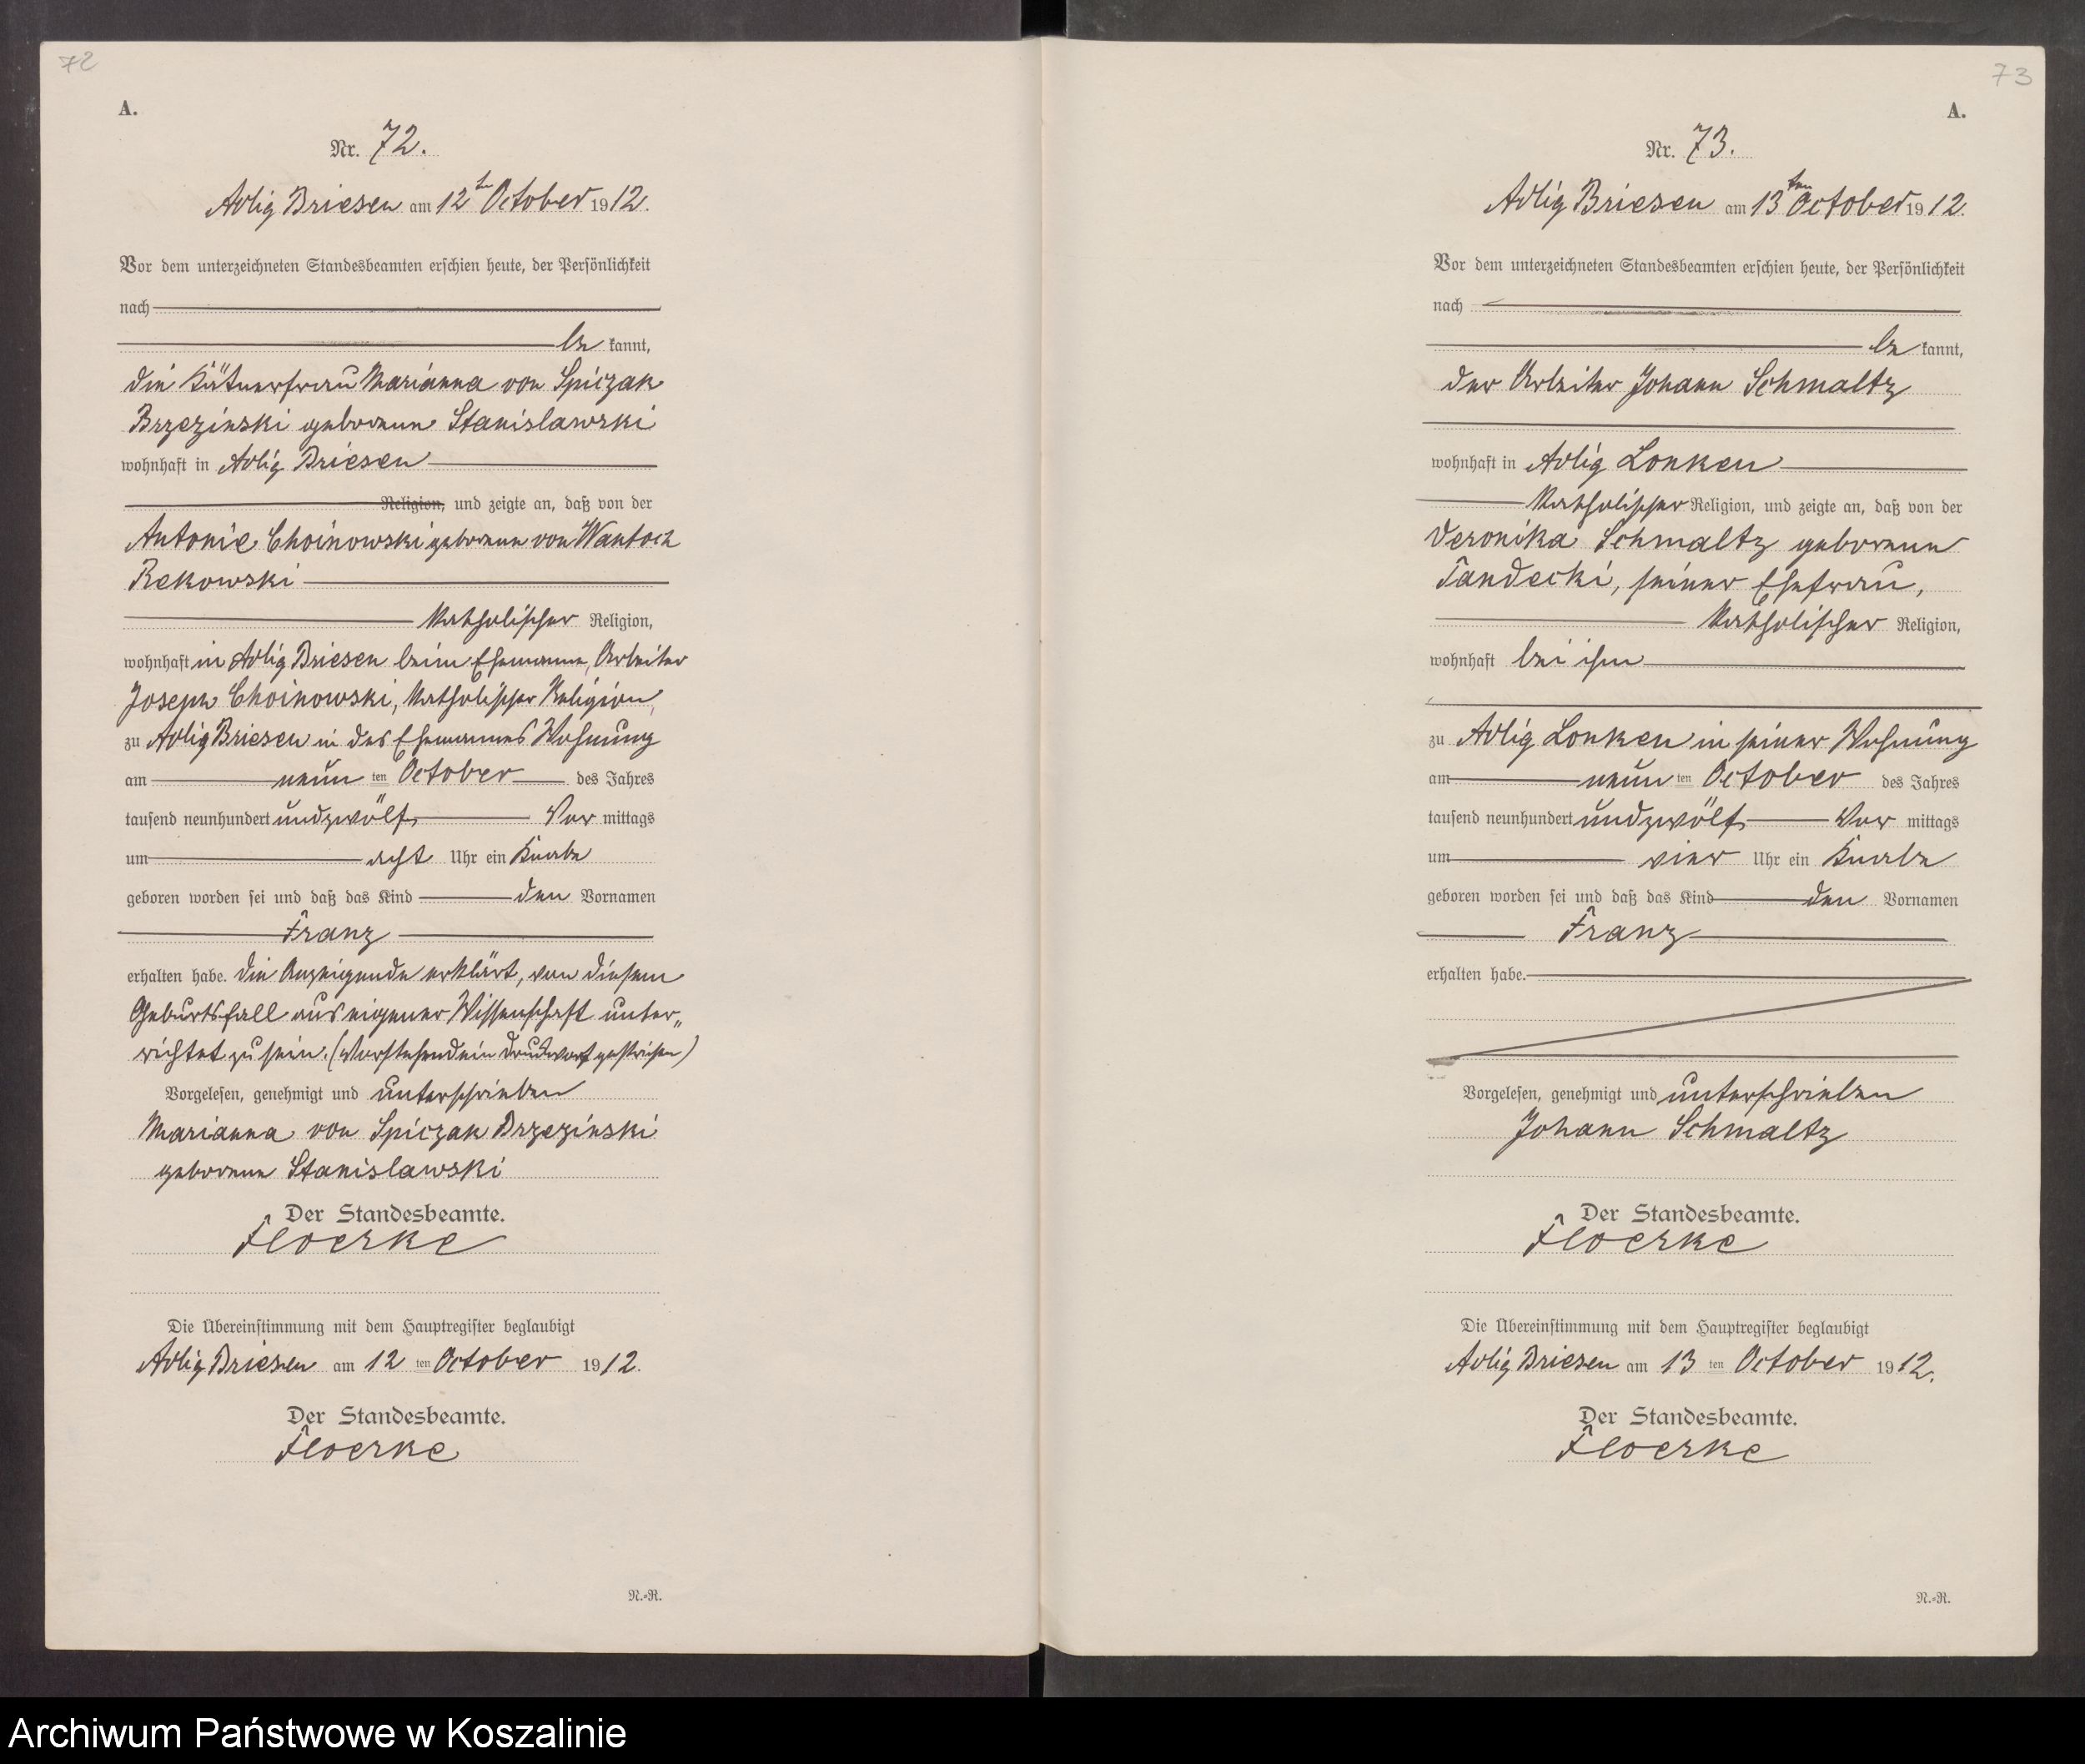 72
A.
Nr. 72.
Adlig Briesen am 12ten October 1912.
Vor dem unterzeichneten Standesbeamten erschien heute, der Persönlichkeit
nach
be kannt,
die Kätnerfrau Marianna von Spiczak
Brzezinski geborene Stanislawski
wohnhaft in Adlig Briesen
Religion, und zeigte an, daß von der
Antonie Choinowski geborene von Wantoch
Rekowski
katholischer Religion,
wohnhaft in Adlig Briesen beim Ehemanne, Arbeiter
Joseph Choinowski, katholischer Religion,
zu Adlig Briesen in des Ehemannes Wohnung
am neun ten October des Jahres
tausend neunhundert undzwölf, Vor mittags
um acht Uhr ein Knabe
geboren worden sei und daß das Kind den Vornamen
Franz
erhalten habe. Die Anzeigende erklärt, von diesem
Geburtsfall aus eigener Wissenschaft unter„
richtet zu sein. (Vorstehend ein Druckwort gestrichen)
Vorgelesen, genehmigt und unterschrieben
Marianna von Spiczak Brzezinski
geborene Stanislawski
Der Standesbeamte.
Floerke
Die Übereinstimmung mit dem Hauptregister beglaubigt
Adlig Briesen am 12 ten October 1912.
Der Standesbeamte.
Floerke
N.-R.
73
A.
Nr. 73.
Adlig Briesen am 13ten October 1912.
Vor dem unterzeichneten Standesbeamten erschien heute, der Persönlichkeit
nach
be kannt,
der Arbeiter Johann Schmaltz
wohnhaft in Adlig Lonken
katholischer Religion, und zeigte an, daß von der
Veronika Schmaltz geborene
Tandecki, seiner Ehefrau,
katholischer Religion,
wohnhaft bei ihm
zu Adlig Lonken in seiner Wohnung
am neun ten October des Jahres
tausend neunhundert undzwölf, Vor mittags
um vier Uhr ein Knabe
geboren worden sei und daß das Kind den Vornamen
Franz
erhalten habe.
Vorgelesen, genehmigt und unterschrieben
Johann Schmaltz
Der Standesbeamte.
Floerke
Die Übereinstimmung mit dem Hauptregister beglaubigt
Adlig Briesen am 13 ten October 1912.
Der Standesbeamte.
Floerke
N.-R.
Archiwum Państwowe w Koszalinie